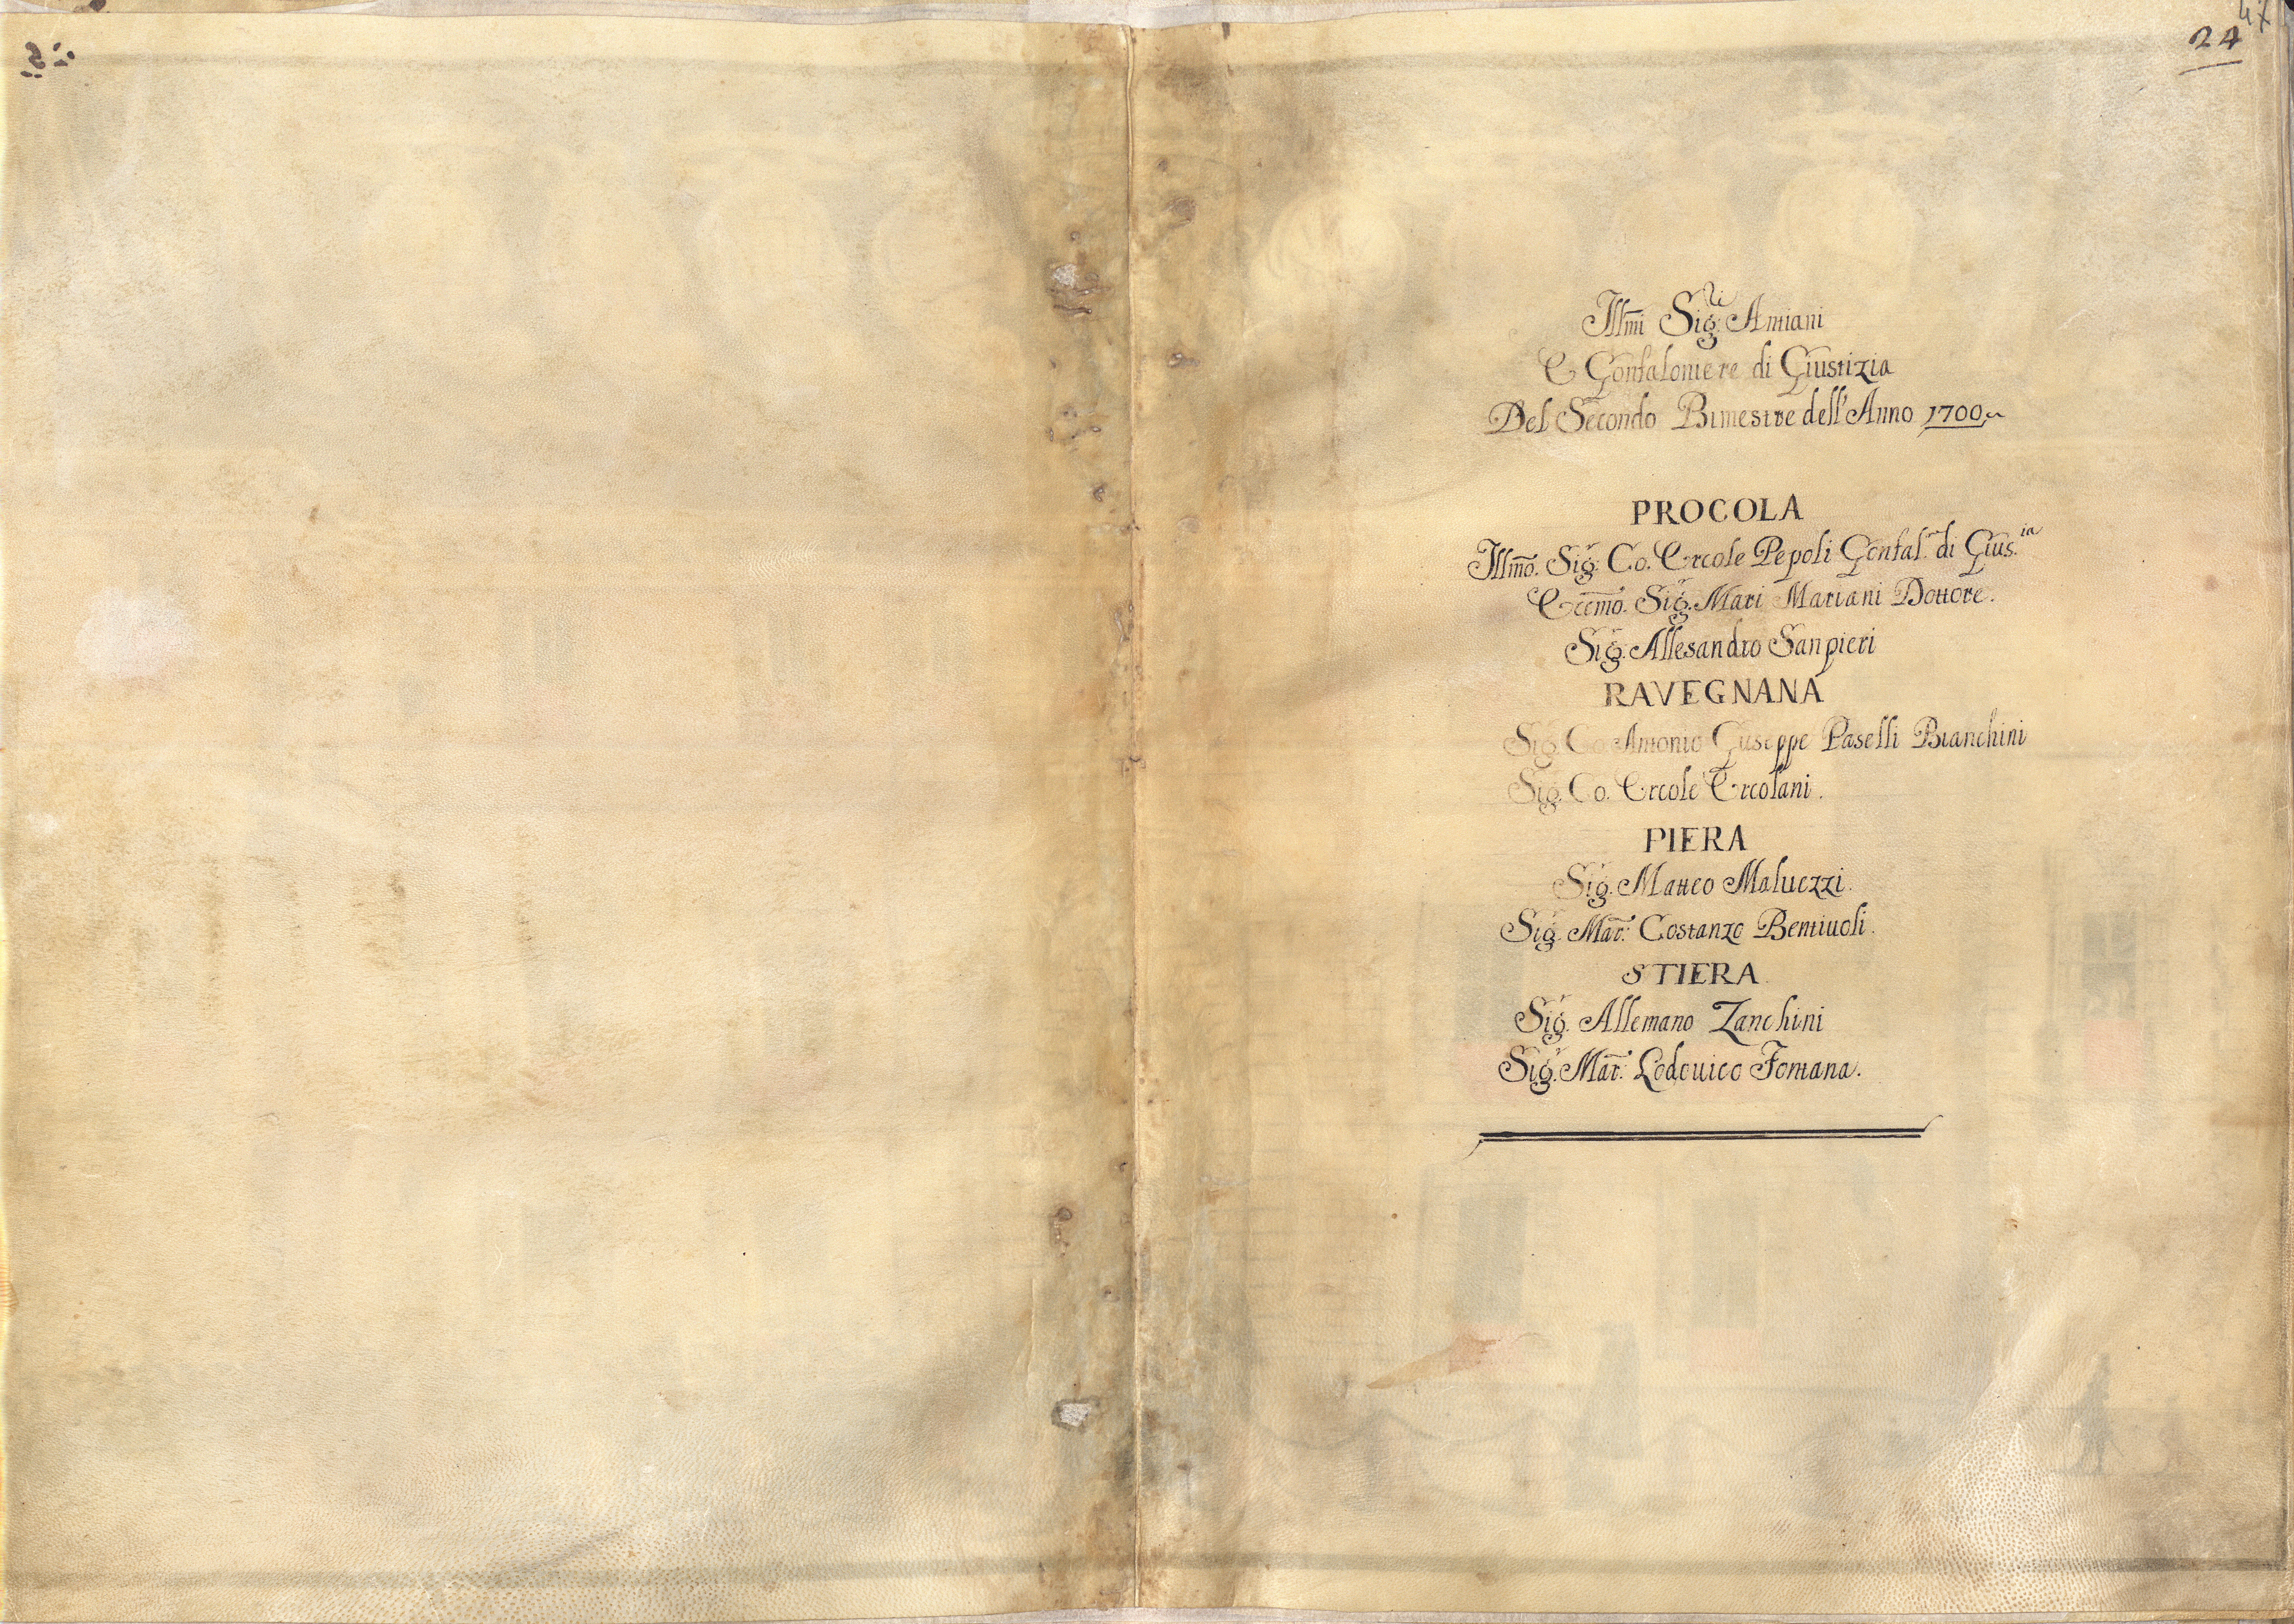 47
24
Illmi Sig.ri Antiani
E Gonfaloniere di Giustizia
Del Secondo Bimestre dell'Anno 1700
PROCOLA
Illmo. Sig.r Co. Ercole Pepoli Gonfal.re di Gius.ia
Eccmo. Sig.r Mari Mariani Dottore.
Sig.r Allesandro Sanpieri
RAVEGNANA
Sig.r Co. Antonio Giuseppe Paselli Bianchini
Sig.r Co. Ercole Ercolani.
PIERA
Sig.r Matteo Maluezzi.
Sig.r Mar: Costanzo Bentiuoli.
STIERA
Sig.r Allemano Zanchini
Sig.r Mar: Lodouico Fontana.